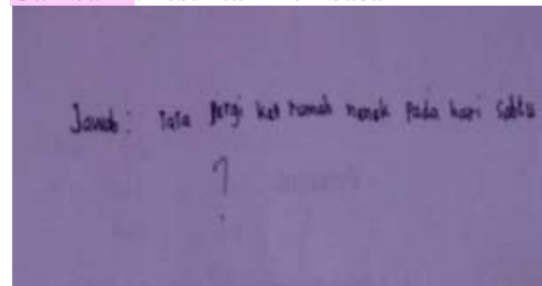 Jawab: Tata pergi ket rumah nenek pada hari Sabtu
?